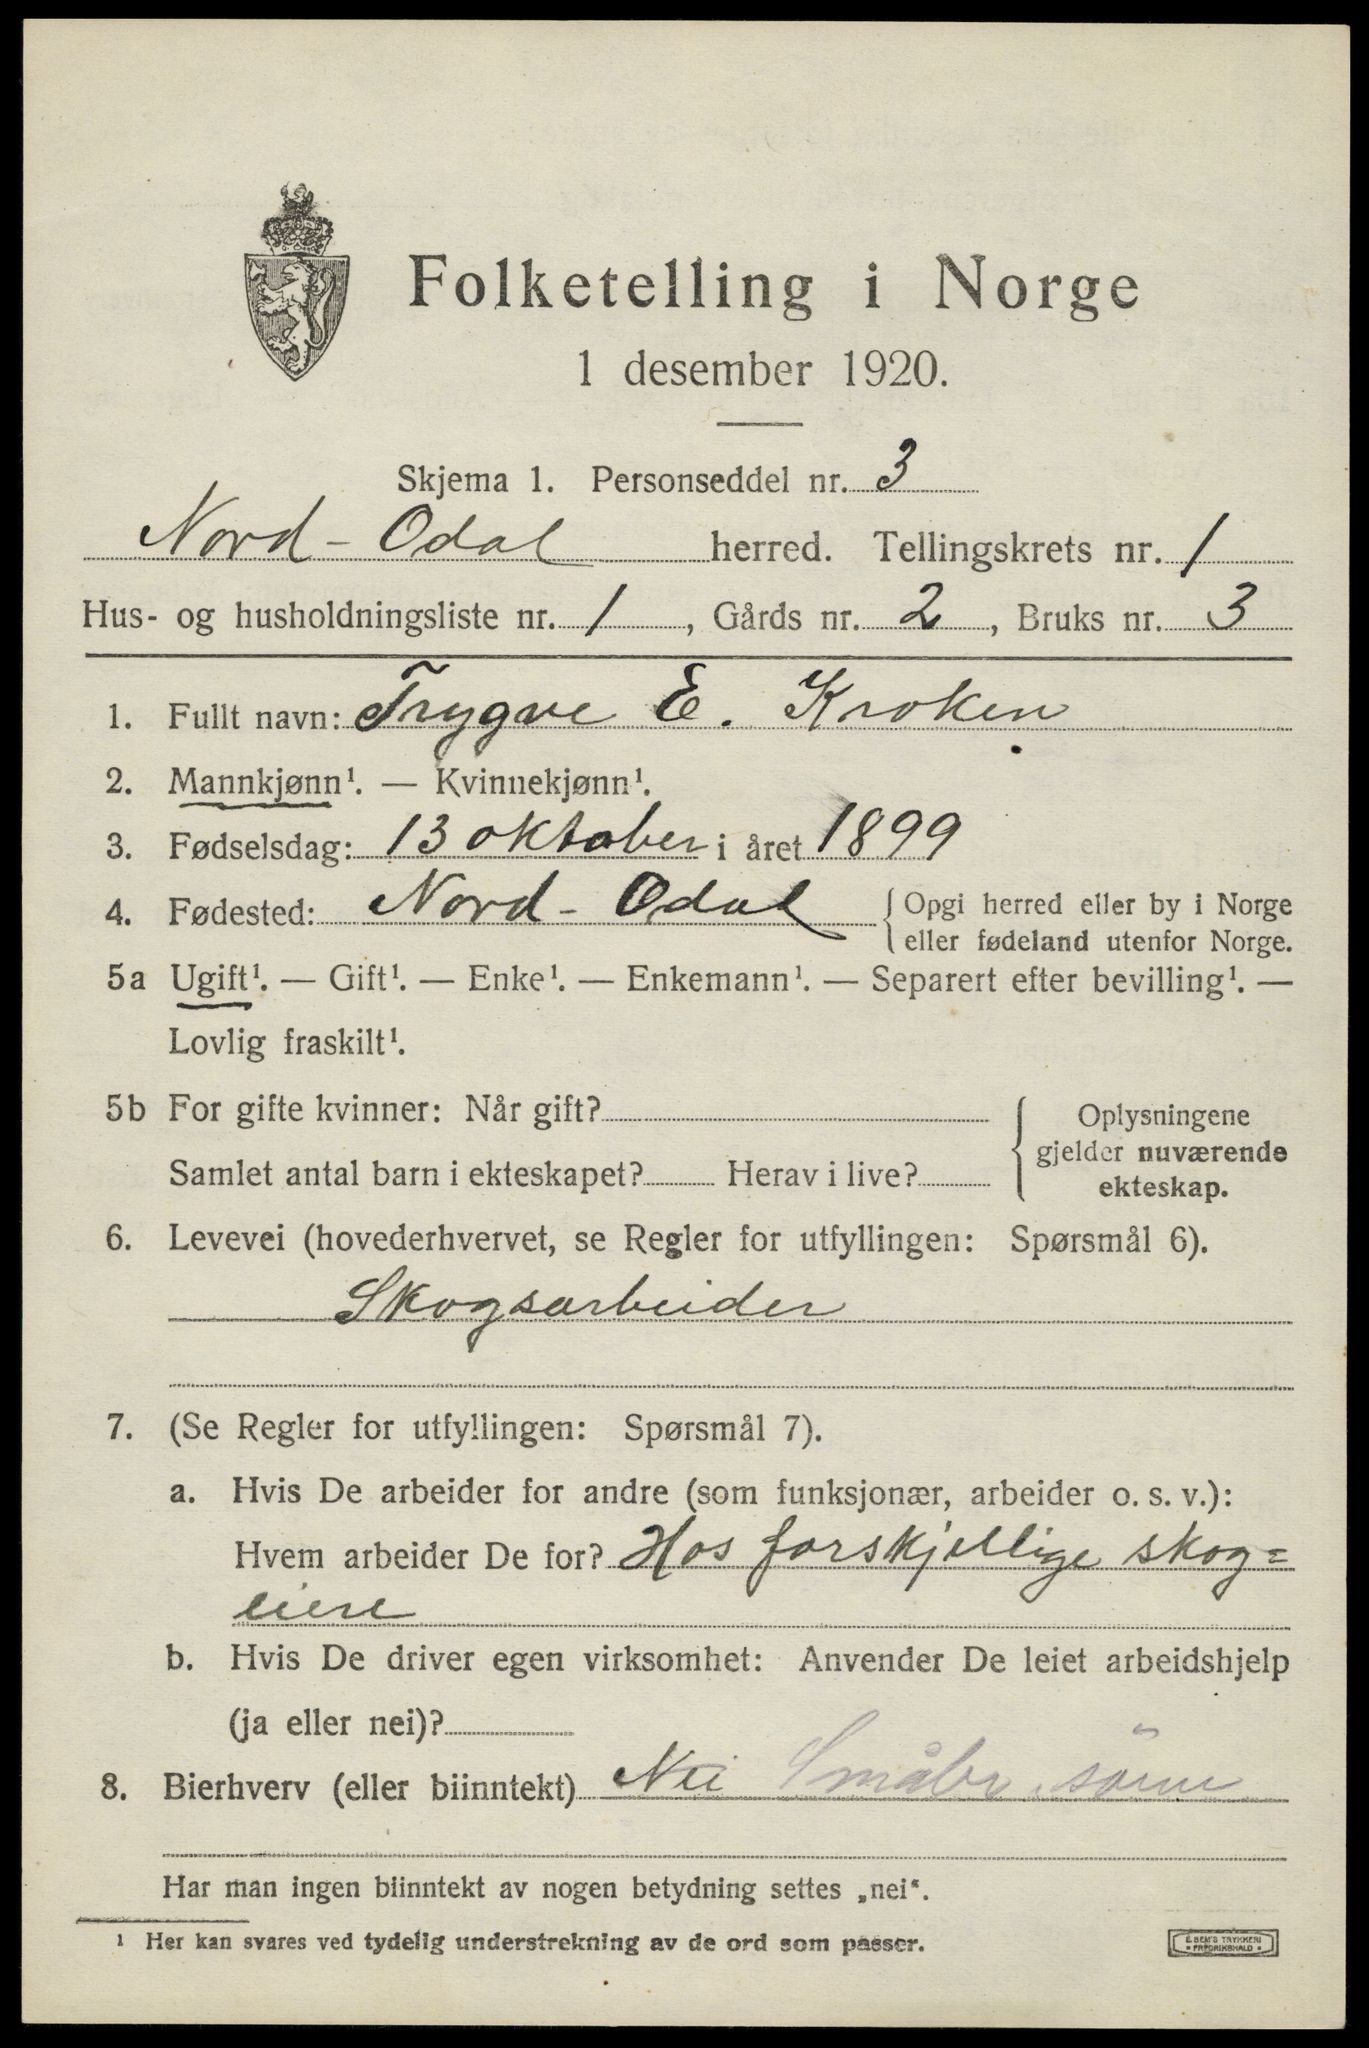 Folketelling i Norge
1 desember 1920.
Skjema 1. Personseddel nr. 3
Nord-Odal herred. Tellingskrets nr. 1
Hus- og husholdningsliste nr. 1, Gårds nr. 2, Bruks nr. 3
1. Fullt navn: Trygve E. Kroken
2. Mannkjønn¹. — Kvinnekjønn¹.
3. Fødselsdag: 13 oktober i året 1899
4. Fødested: Nord-Odal { Opgi herred eller by i Norge
eller fødeland utenfor Norge.
5a Ugift¹. — Gift¹. — Enke¹. — Enkemann¹. — Separert efter bevilling¹. —
Lovlig fraskilt¹.
5b For gifte kvinner: Når gift?
Samlet antal barn i ekteskapet? Herav i live?
Oplysningene
gjelder nuværende
ekteskap.
6. Levevei (hovederhvervet, se Regler for utfyllingen: Spørsmål 6).
Skogsarbeider
7. (Se Regler for utfyllingen: Spørsmål 7).
a. Hvis De arbeider for andre (som funksjonær, arbeider o. s. v.):
Hvem arbeider De for? Hos forskjellige skog=
eiere
b. Hvis De driver egen virksomhet: Anvender De leiet arbeidshjelp
(ja eller nei)?
8. Bierhverv (eller biinntekt) Nei Småbr. sönn
Har man ingen biinntekt av nogen betydning settes „nei“.
¹ Her kan svares ved tydelig understrekning av de ord som passer.
E. SEM'S TRYKKERI
FREDRIKSHALD